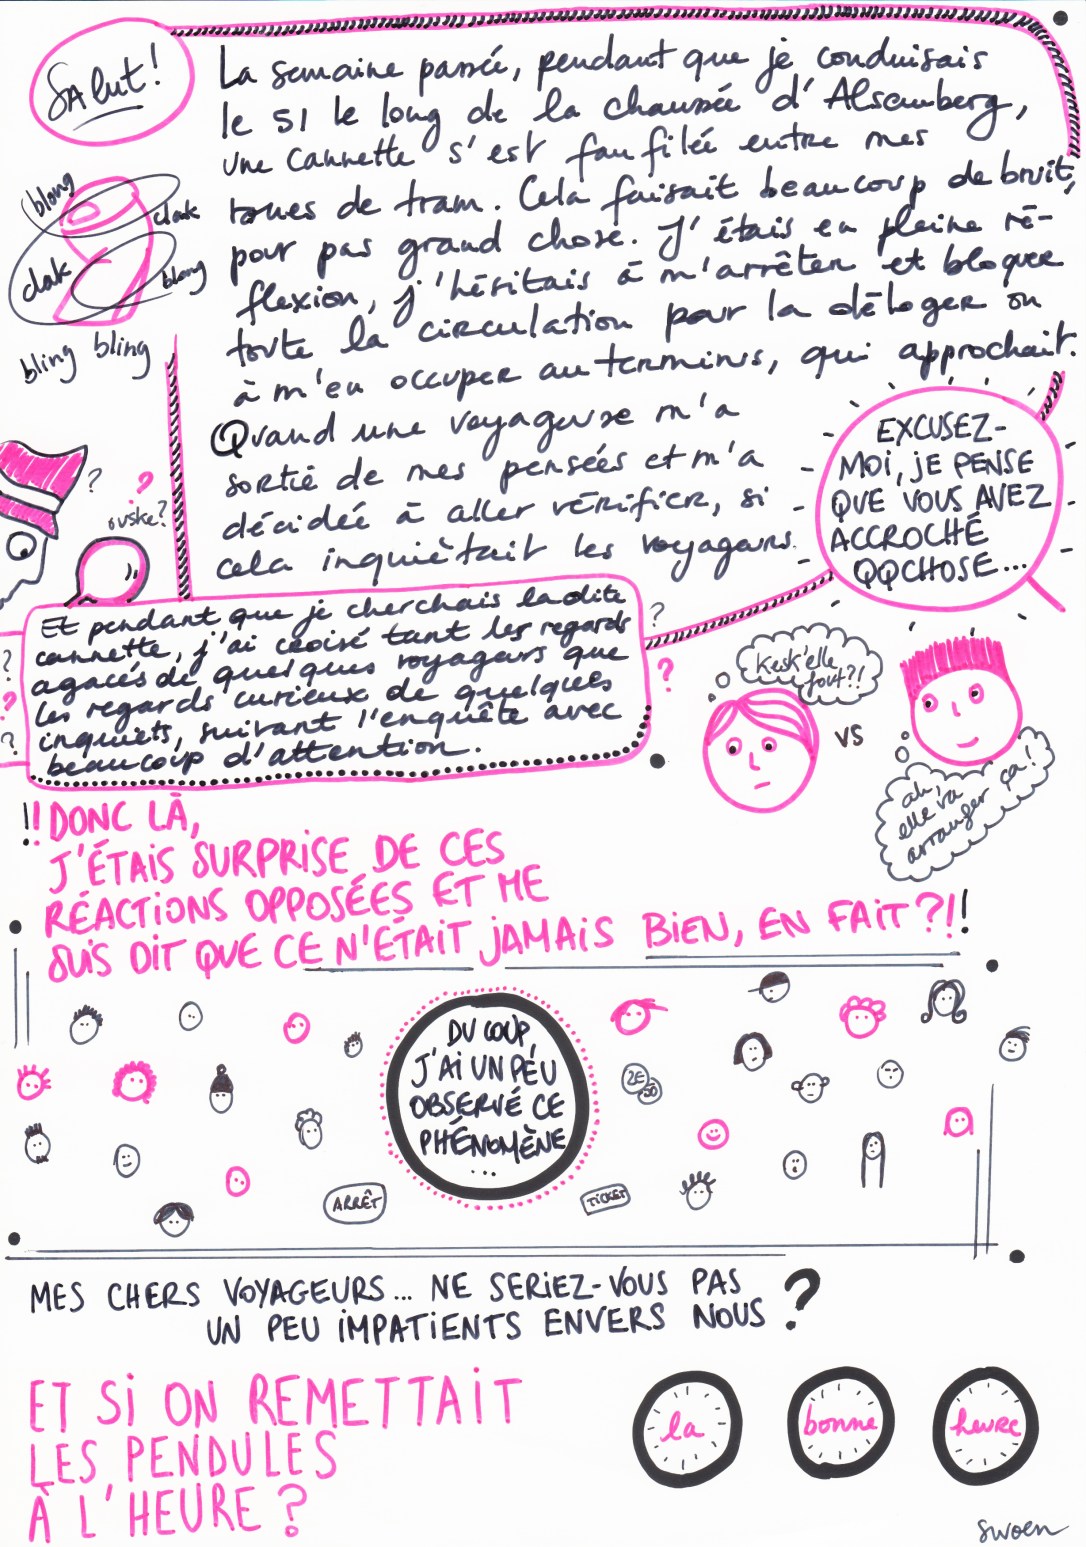 Salut!
La semaine passée, pendant que je conduisais
le 51 le long de la chaussée d'Alsemberg,
une cannette s'est faufilée entre mes
roues de tram. Cela faisait beaucoup de bruit,
pour pas grand chose. J'étais en pleine ré-
flexion, j'hésitais à m'arrêter et bloquer
toute la circulation pour la déloger ou
à m'en occuper au terminus, qui approchait.
Quand une voyageuse m'a
sortie de mes pensées et m'a
décidée à aller vérifier, si
cela inquiétait les voyageurs.
blong
clak
clak
blong
bling bling
EXCUSEZ-
MOI, JE PENSE
QUE VOUS AVEZ
ACCROCHÉ
QQCHOSE...
?
?
ouske?
Et pendant que je cherchais ladite
cannette, j'ai croisé tant les regards
agacés de quelques voyageurs que
les regards curieux de quelques
inquiets, suivant l'enquête avec
beaucoup d'attention.
?
?
?
?
?
Kesk'elle
fout?!
VS
ah,
elle va
arranger ça!
!! DONC LÀ,
J'ÉTAIS SURPRISE DE CES
RÉACTIONS OPPOSÉES ET ME
SUIS DIT QUE CE N'ÉTAIT JAMAIS BIEN, EN FAIT?!!
DU COUP,
J'AI UN PEU
OBSERVÉ CE
PHÉNOMÈNE
...
2E
50
ARRÊT
TICKET
MES CHERS VOYAGEURS... NE SERIEZ-VOUS PAS
UN PEU IMPATIENTS ENVERS NOUS ?
ET SI ON REMETTAIT
LES PENDULES
À L'HEURE ?
la
bonne
heure
swoen